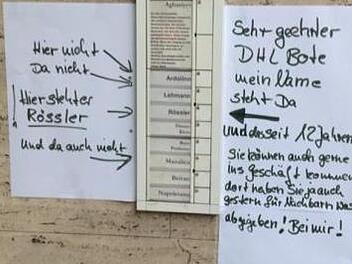 Hier nicht
Da nicht
Hier steht er
Rössler
und da auch nicht
Ardolino
Lehmann
Rössler
Mazalica
Berner
Napoletano
Sehr geehrter
DHL Bote
mein Name
steht Da
und das seit 12 Jahren
Sie können auch gerne
ins Geschäft kommen
dort haben Sie ja auch
gestern für Nachbarn was
abgegeben! Bei mir!